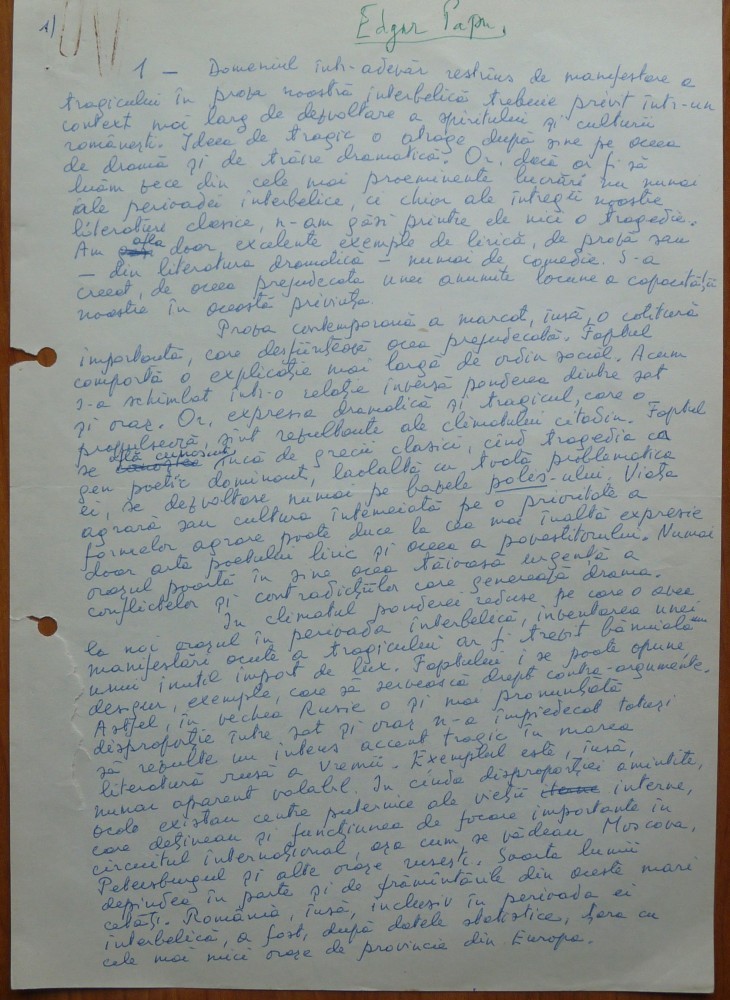 A)
Edgar Papu.
1 — Domeniul într-adevăr restrîns de manifestare a
tragicului în proza noastră interbelică trebuie privit într-un
context mai larg de dezvoltare a spiritului și culturii
românești. Ideea de tragic o atrage după sine pe aceea
de dramă și de trăire dramatică. Or, dacă ar fi să
luăm zece din cele mai proeminente lucrări nu numai
ale perioadei interbelice, ci chiar ale întregii noastre
literaturi clasice, n-am găsi printre ele nici o tragedie.
Am afla doar excelente exemple de lirică, de proză sau
— din literatura dramatică — numai de comedie. S-a
creat, de aceea prejudecata unei anumite lacune a capacității
noastre în această privință.
Proza contemporană a marcat, însă, o cotitură
importantă, care desființează acea prejudecată. Faptul
comportă o explicație mai largă de ordin social. Acum
s-a schimbat într-o relație inversă ponderea dintre sat
și oraș. Or, expresia dramatică și tragicul, care o
propulsează, sînt rezultante ale climatului citadin. Faptul
se află cunoscut încă de grecii clasici, cînd tragedia ca
gen poetic dominant, laolaltă cu toată problematica
ei, se dezvoltase numai pe bazele polis-ului. Viața
agrară sau cultura întemeiată pe o prioritate a
formelor agrare poate duce la cea mai înaltă expresie
doar arta poetului liric și aceea a povestitorului. Numai
orașul poartă în sine acea tăioasă urgență a
conflictelor și contradicțiilor care generează drama.
In climatul ponderei reduse pe care o avea
la noi orașul în perioada interbelică, inventarea unei
manifestări acute a tragicului ar fi trezit bănuiala
unui inutil import de lux. Faptului i se poate opune,
desigur, exemple, care să servească drept contra-argumente.
Astfel, în vechea Rusie o și mai pronunțată
disproporție între sat și oraș n-a împiedecat totuși
să rezulte un intens accent tragic în marea
literatură rusă a vremii. Exemplul este, însă,
numai aparent valabil. In ciuda disproporției amintite,
acolo existau centre puternice ale vieții interne,
care dețineau și funcțiunea de focare importante în
circuitul internațional, așa cum se vădeau Moscova,
Petersburgul și alte orașe rusești. Soarta lumii
depindea în parte și de frămîntările din aceste mari
cetăți. România, însă, inclusiv în perioada ei
interbelică, a fost, după datele statistice, țara cu
cele mai mici orașe de provincie din Europa.